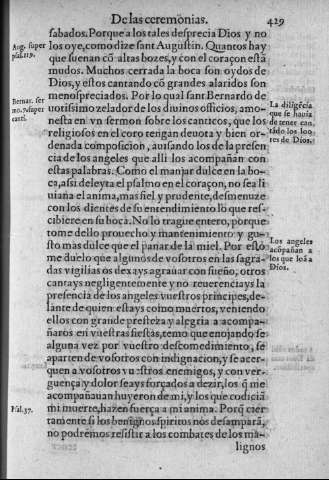 De las ceremonias.
429
sabados. Porque a los tales desprecia Dios y no
los oye, como dize sant Augustin. Quantos hay
que suenan cõ altas bozes, y con el coraçon está
mudos. Muchos cerrada la boca son oydos de
Dios, y estos cantando cõ grandes alaridos son
menospreciados. Por lo qual sant Bernardo de
uotissimo zelador de los diuinos officios, amo-
nesta en vn sermon sobre los canticos, que los
religiosos en el coro tengan deuota y bien or-
denada composicion, auisando los de la presen-
cia de los angeles que alli los acompañan con
estas palabras. Como el manjar dulce en la bo-
ca, assi deleyta el psalmo en el coraçon, no sea li
uiana el anima, mas fiel y prudente, desmenuze
con los dientes de su entendimiento lo que re-
cibiere en su boca. No lo trague entero, porque
tome dello prouecho y mantenimiento y gu-
sto mas dulce que el panar de la miel. Por esto
me duelo que algunos de vosotros en las sagra-
das vigilias os dexays agrauar con sueño, otros
cantays negligentemente y no reuerenciays la
presencia de los angeles vuestros principes, de-
lante de quien estays como muertos, veniendo
ellos con grande presteza y alegria a acompa-
ñaros en vuestras fiestas, temo que enojando se
alguna vez por vuestro descomedimiento, se
aparten de vosotros con indignacion, y se acer-
quen a vosotros vuestros enemigos, y con ver-
guença y dolor seays forçados a dezir, los q̃ me
acompañauan huyeron de mi, y los que codiciã
mi muerte, hazen fuerça a mi anima. Porq̃ cier
tamente si los benignos spiritus nos desampará,
no podremos resistir a los combates de los ma-
lignos
Aug. super
psal. 119.
Bernar. ser
mo. 7. super
canti.
Psal. 37.
La diligẽcia
que se hauia
de tener can
tãdo los loo
res de Dios.
Los angeles
acõpañan a
los que loã a
Dios.